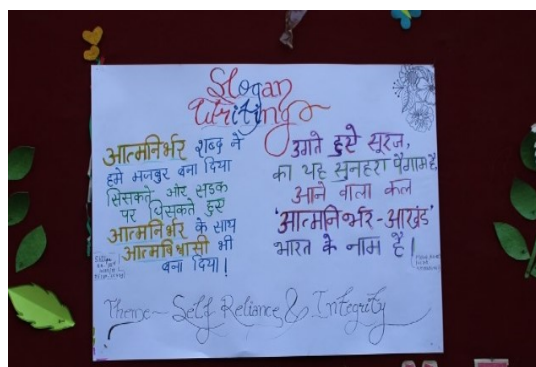 Slogan
Writing
आत्मनिर्भर शब्द ने
हमे मजबुर बना दिया
सिसकते और सड़क
पर घिसकते हुए
आत्मनिर्भर के साथ
आत्मविश्वासी भी
बना दिया!
उगते हुऐ सूरज,
का यह सुनहरा पैगाम है,
आने वाला कल
'आत्मनिर्भर-आखंड'
भारत के नाम है!
Theme- Self Reliance & Integrity